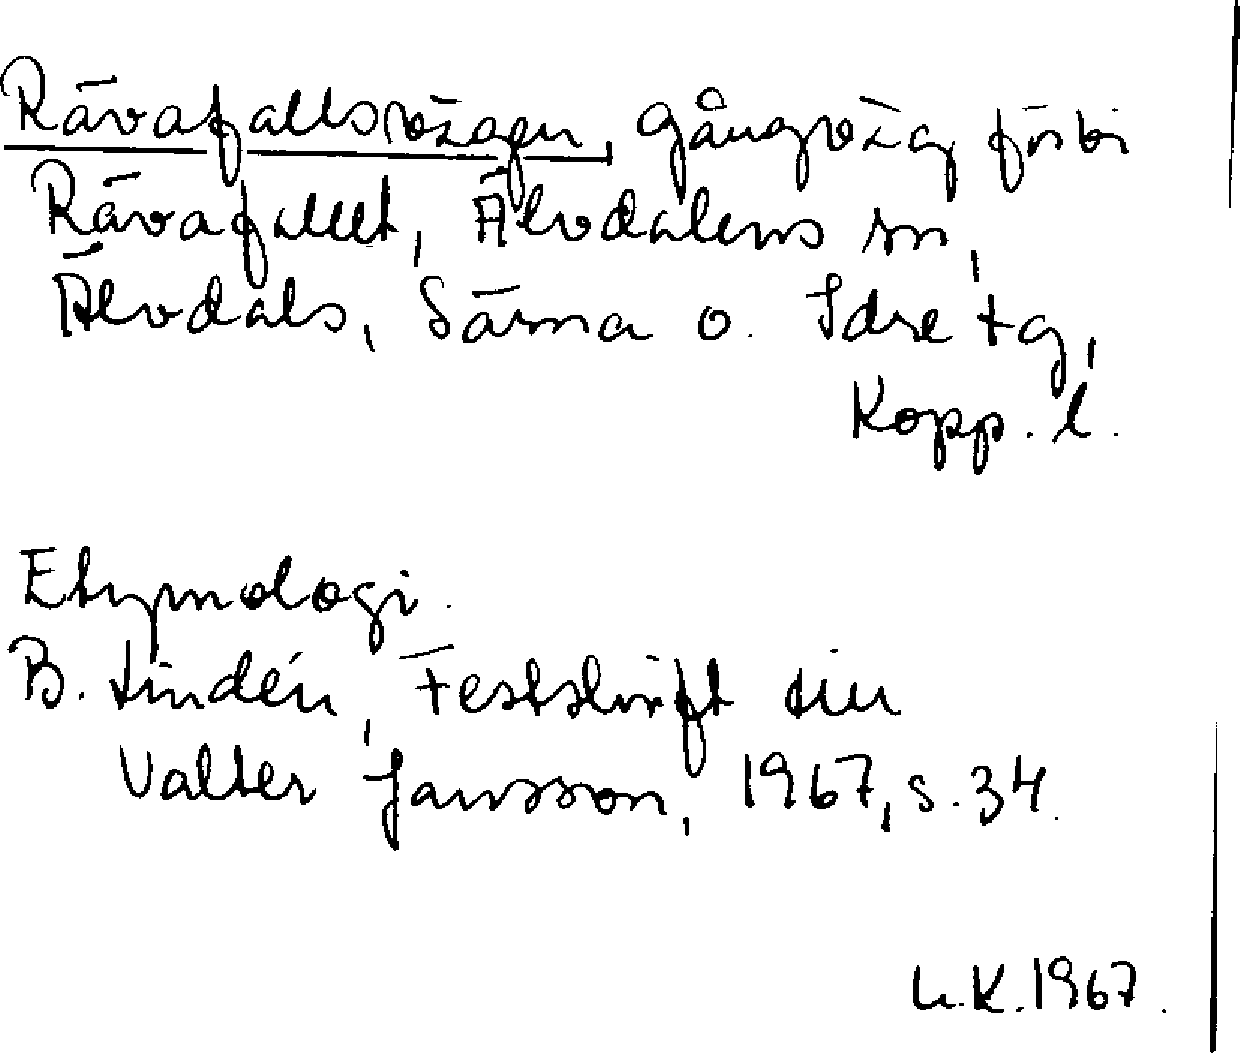 Rävafallsvägen, gångväg förbi
Rävafallet, Älvdalens sn,
Älvdals, Särna o. Idre tg,
Kopp. l.
Etymologi.
B. Lindén, Festskrift till
Valter Jansson, 1967, s. 34.
L.K. 1967.